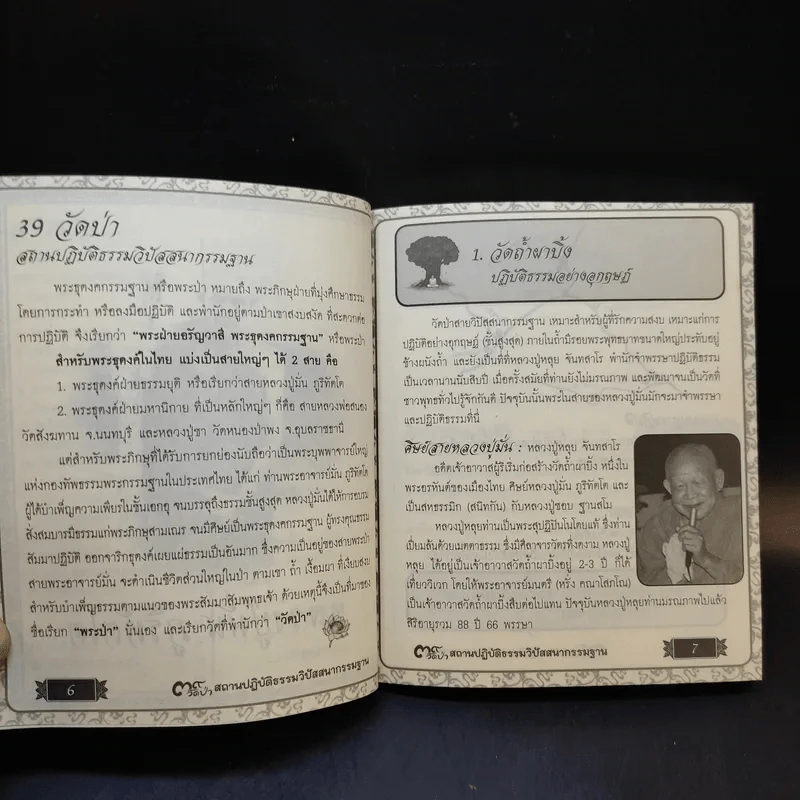 39 วัดป่า
สถานปฏิบัติธรรมวิปัสสนากรรมฐาน
พระธุดงคกรรมฐาน หรือพระป่า หมายถึง พระภิกษุฝ่ายที่มุ่งศึกษาธรรม
โดยการกระทำ หรือลงมือปฏิบัติ และพำนักอยู่ตามป่าเขาสงบสงัด ที่สะดวกต่อ
การปฏิบัติ จึงเรียกว่า "พระฝ่ายอรัญวาสี พระธุดงคกรรมฐาน" หรือพระป่า
สำหรับพระธุดงค์ในไทย แบ่งเป็นสายใหญ่ๆ ได้ 2 สาย คือ
1. พระธุดงค์ฝ่ายธรรมยุติ หรือเรียกว่าสายหลวงปู่มั่น ภูริทัตโต
2. พระธุดงค์ฝ่ายมหานิกาย ที่เป็นหลักใหญ่ๆ ก็คือ สายหลวงพ่อสนอง
วัดสังฆทาน จ.นนทบุรี และหลวงปู่ชา วัดหนองป่าพง จ.อุบลราชธานี
แต่สำหรับพระภิกษุที่ได้รับการยกย่องนับถือว่าเป็นพระบุพพาจารย์ใหญ่
แห่งกองทัพธรรมพระกรรมฐานในประเทศไทย ได้แก่ ท่านพระอาจารย์มั่น ภูริทัตโต
ผู้ได้บำเพ็ญความเพียรในขั้นเอกอุ จนบรรลุถึงธรรมชั้นสูงสุด หลวงปู่มั่นได้ให้การอบรม
สั่งสมบารมีธรรมแก่พระภิกษุสามเณร จนมีศิษย์เป็นพระธุดงคกรรมฐาน ผู้ทรงคุณธรรม
สัมมาปฏิบัติ ออกจาริกธุดงค์เผยแผ่ธรรมเป็นอันมาก ซึ่งความเป็นอยู่ของสายพระป่า
สายพระอาจารย์มั่น จะดำเนินชีวิตส่วนใหญ่ในป่า ตามเขา ถ้ำ เงื้อมผา ที่เงียบสงบ
สำหรับบำเพ็ญธรรมตามแนวของพระสัมมาสัมพุทธเจ้า ด้วยเหตุนี้จึงเป็นที่มาของ
ชื่อเรียก "พระป่า" นั่นเอง และเรียกวัดที่พำนักว่า "วัดป่า"
6
๓๙ วัดป่า สถานปฏิบัติธรรมวิปัสสนากรรมฐาน
1. วัดถ้ำผาบิ้ง
ปฏิบัติธรรมอย่างอุกฤษฎ์
วัดป่าสายวิปัสสนากรรมฐาน เหมาะสำหรับผู้ที่รักความสงบ เหมาะแก่การ
ปฏิบัติอย่างอุกฤษฎ์ (ขั้นสูงสุด) ภายในถ้ำมีรอยพระพุทธบาทขนาดใหญ่ประทับอยู่
ข้างผนังถ้ำ และยังเป็นที่ที่หลวงปู่หลุย จันทสาโร พำนักจำพรรษาปฏิบัติธรรม
เป็นเวลานานนับสิบปี เมื่อครั้งสมัยที่ท่านยังไม่มรณภาพ และพัฒนาจนเป็นวัดที่
ชาวพุทธทั่วไปรู้จักกันดี ปัจจุบันนั้นพระในสายของหลวงปู่มั่นมักจะมาจำพรรษา
และปฏิบัติธรรมที่นี่
ศิษย์สายหลวงปู่มั่น : หลวงปู่หลุย จันทสาโร
อดีตเจ้าอาวาสผู้ริเริ่มก่อสร้างวัดถ้ำผาบิ้ง หนึ่งใน
พระอรหันต์ของเมืองไทย ศิษย์หลวงปู่มั่น ภูริทัตโต และ
เป็นสหธรรมิก (สนิทกัน) กับหลวงปู่ชอบ ฐานสโม
หลวงปู่หลุยท่านเป็นพระสุปฏิปันโนโดยแท้ ซึ่งท่าน
เปี่ยมล้นด้วยเมตตาธรรม ซึ่งมีศีลาจารวัตรที่งดงาม หลวงปู่
หลุย ได้อยู่เป็นเจ้าอาวาสวัดถ้ำผาบิ้งอยู่ 2-3 ปี ก็ได้
เที่ยววิเวก โดยให้พระอาจารย์มนตรี (หรั่ง คณาโสภโณ)
เป็นเจ้าอาวาสวัดถ้ำผาบิ้งสืบต่อไปแทน ปัจจุบันหลวงปู่หลุยท่านมรณภาพไปแล้ว
สิริอายุรวม 88 ปี 66 พรรษา
๓๙ วัดป่า สถานปฏิบัติธรรมวิปัสสนากรรมฐาน
7